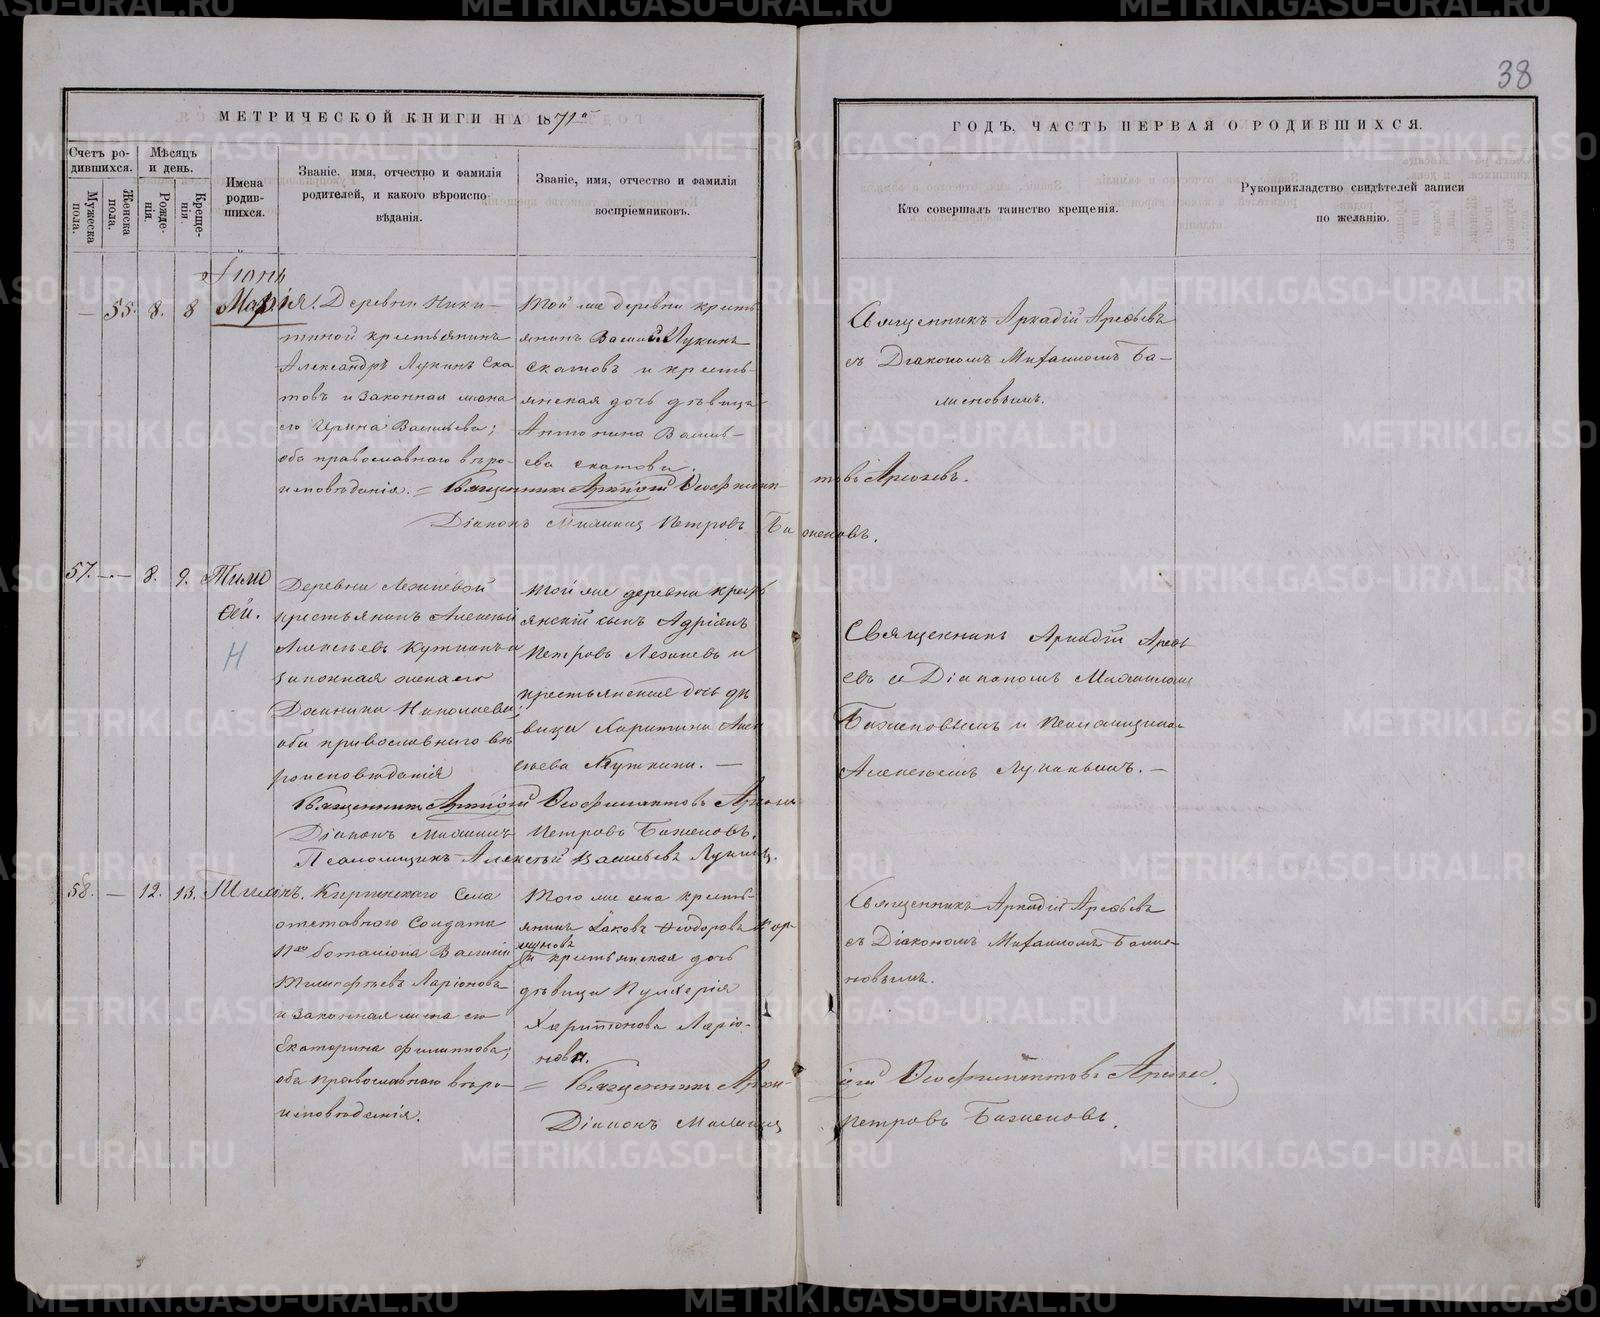 38
МЕТРИЧЕСКОЙ КНИГИ НА 1871й
ГОДЪ, ЧАСТЬ ПЕРВАЯ О РОДИВШИХСЯ.
Счетъ ро-
дившихся.
Мужеска
пола.
Женска
пола.
Мѣсяцъ
и день.
Рожде-
нія.
Креще-
нія.
Имена
родив-
шихся.
Званіе, имя, отчество и фамилія
родителей, и какого вѣроиспо-
вѣданія.
Званіе, имя, отчество и фамилія
воспріемниковъ.
Кто совершалъ таинство крещенія.
Рукоприкладство свидѣтелей записи
по желанію.
Іюнь
— 55. 8. 8 Марія.
Деревни Ники-
тиной крестьянинъ
Александръ Лукинъ Ска
товъ и законная жена
его Ирина Васильева;
оба православнаго вѣро-
исповѣданія.
Той же деревни кресть
янинъ Василій Лукинъ
Скатовъ и кресть-
янская дочь дѣвица
Антонина Василь-
ева Скатова.
Священникъ Аркадій Арефьевъ
съ Діакономъ Михаиломъ Ба-
женовымъ.
= Священникъ Аркадій Феофилактовъ Арефьевъ.
Діаконъ Михаилъ Петровъ Баженовъ.
57. — 8. 9. Тимо
фей.
Н
Деревни
крестьянинъ Алексѣй
Алексѣевъ Куткинъ и
законная жена его
Домника Николаева;
оба православнаго вѣ
роисповѣданія
Той же деревни кресть
янскій сынъ Адріанъ
Петровъ и
крестьянская дочь дѣ
вица Харитина Алек
сѣева Куткина. —
Священникъ Аркадій Арефь
евъ съ Діакономъ Михаиломъ
Баженовымъ и Псаломщикомъ
Алексѣемъ Лукинымъ. —
Священникъ Аркадій Феофилактовъ Арефьевъ
Діаконъ Михаилъ Петровъ Баженовъ.
Псаломщикъ Алексѣй Васильевъ Лукинъ.
58. — 12. 13. Тихонъ.
Киргинскаго Села
отставнаго Солдата
баталіона Василій
Тимофѣевъ Ларіоновъ
и законная жена его
Екатерина Филиппова;
оба православнаго вѣро-
исповѣданія.
Того же села кресть-
янинъ Іаковъ Феодоровъ Кор-
муновъ
и крестьянская дочь
дѣвица Пулхерія
Харитонова Ларіо-
нова.
Священникъ Аркадій Арефьевъ
съ Діакономъ Михаиломъ Баже-
новымъ.
= Священникъ Аркадій Феофилактовъ Арефьевъ.
Діаконъ Михаилъ Петровъ Баженовъ.
METRIKI.GASO-URAL.RU